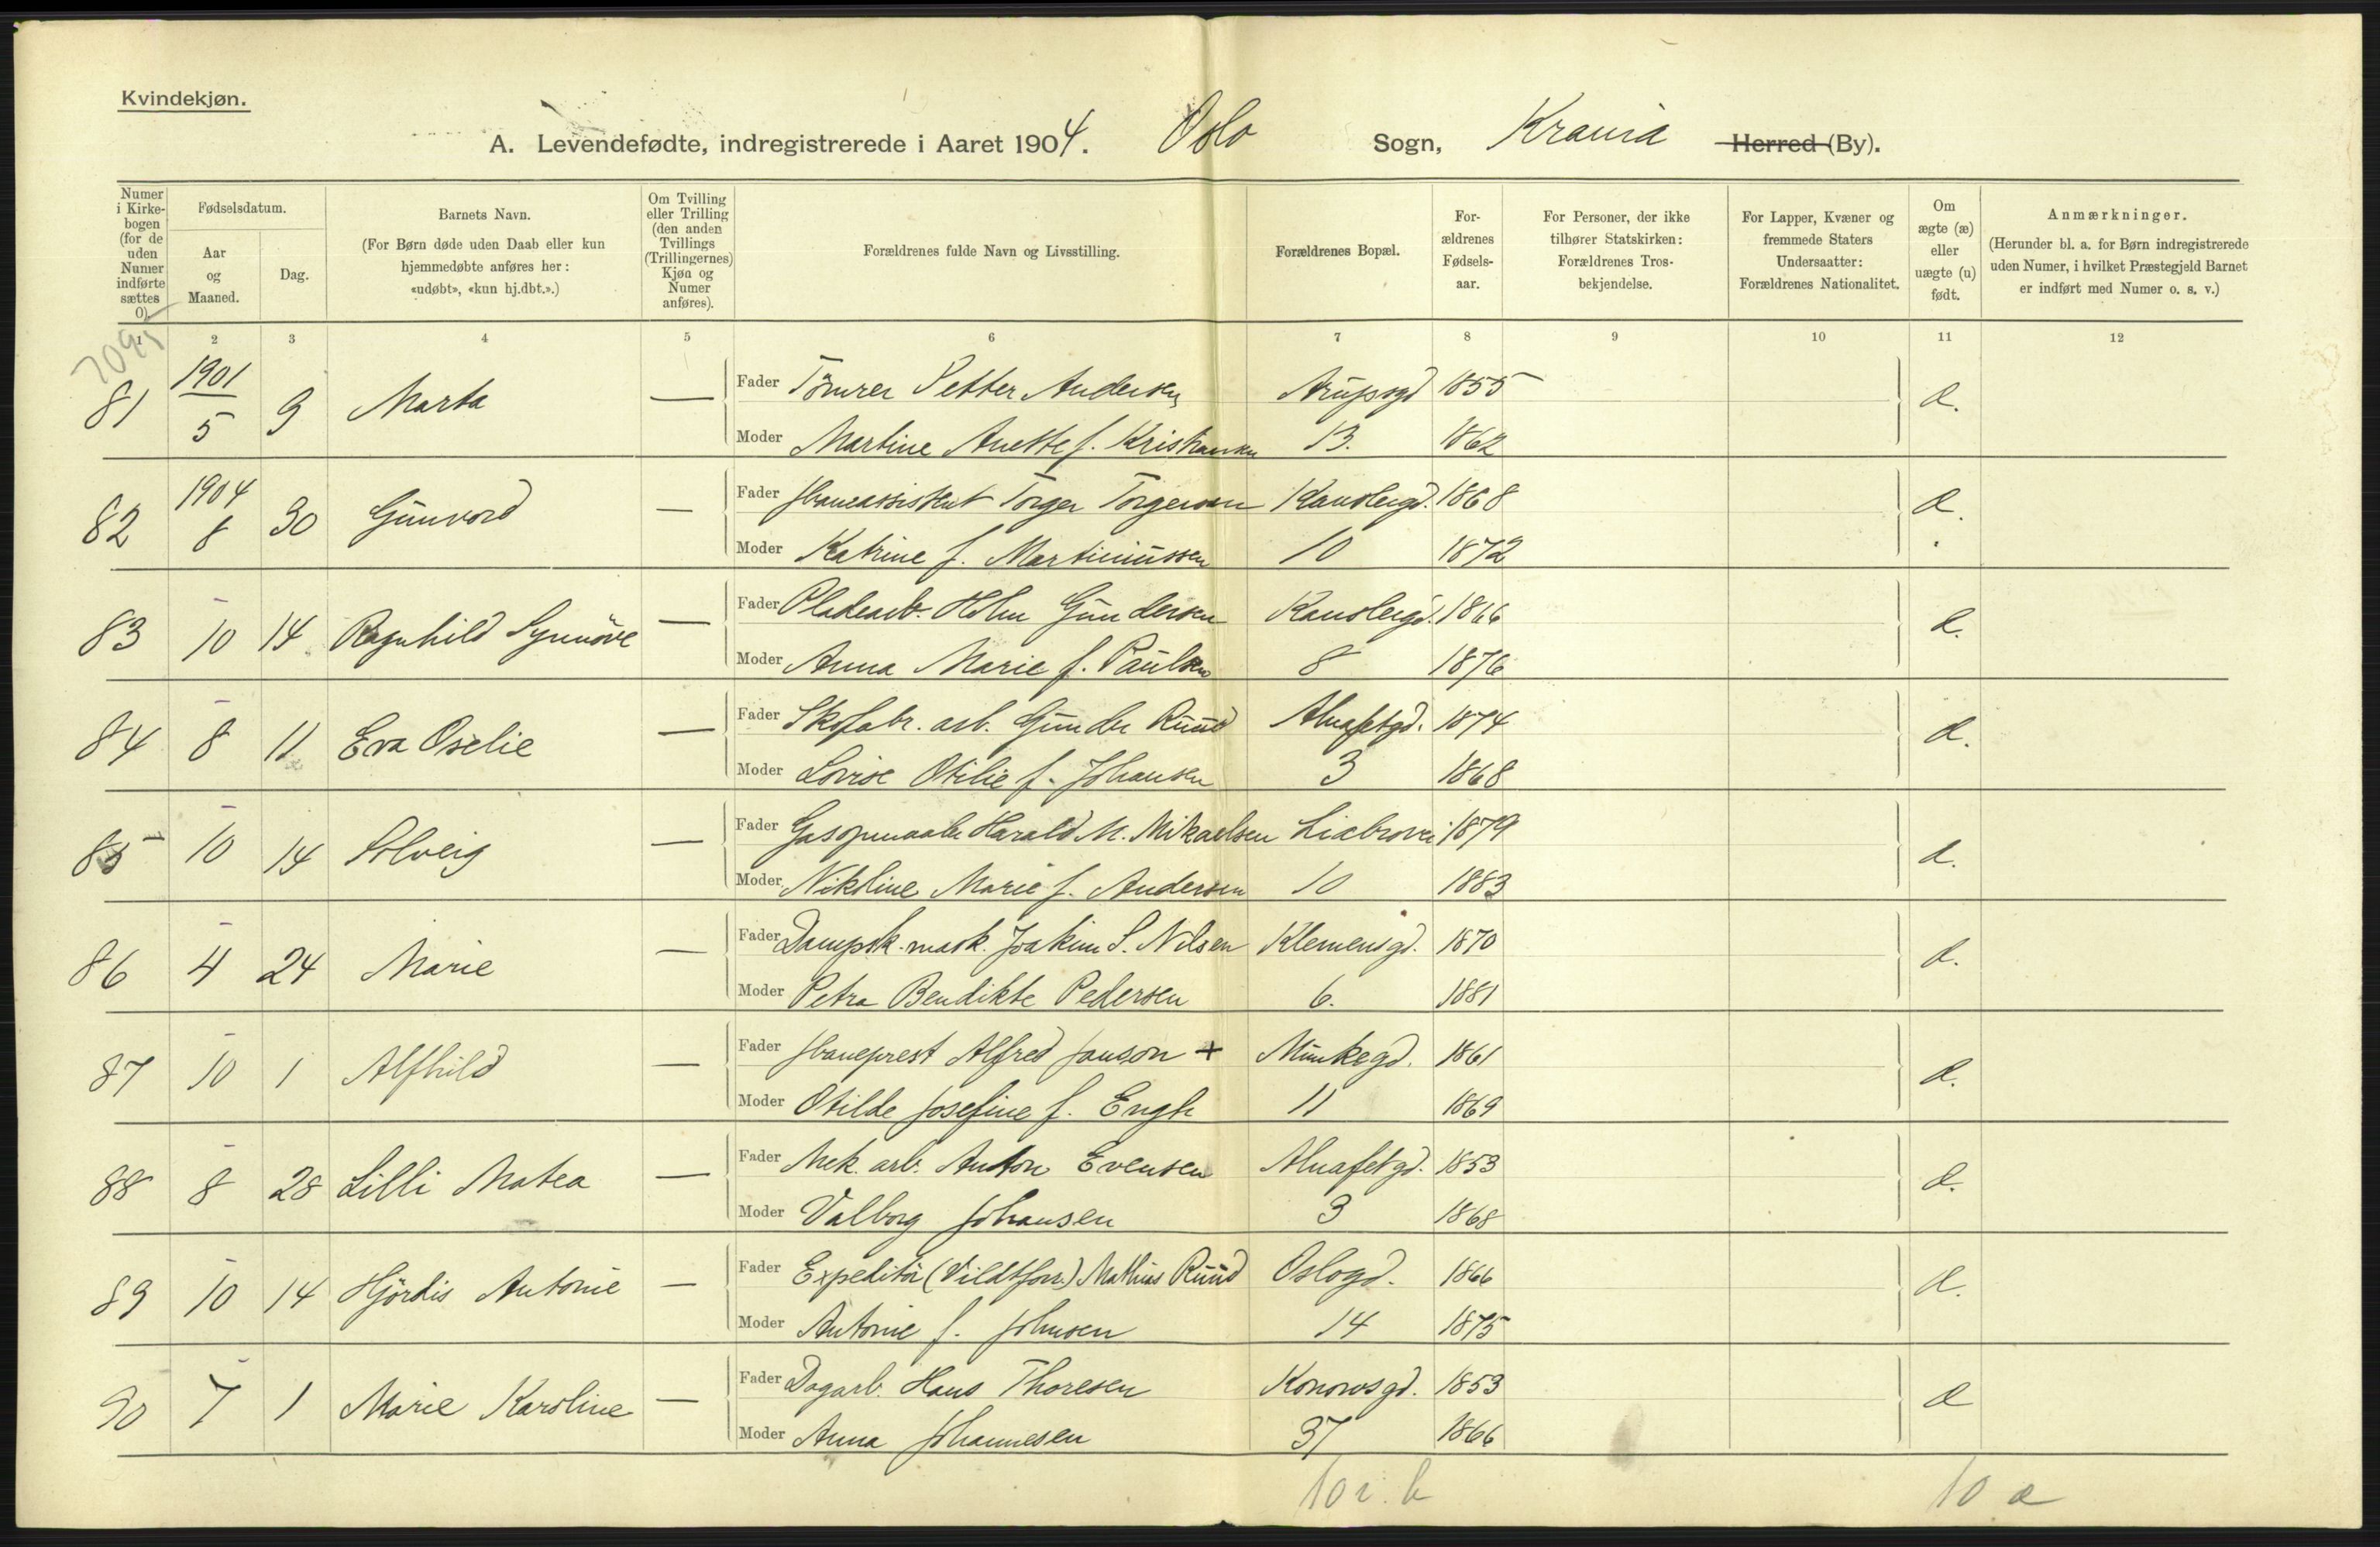 Kvindekjøn.
A. Levendefødte, indregistrerede i Aaret 1904. Oslo Sogn, Krania Herred (By).
Numer i Kirkebogen (for de uden Numer indførte sættes 0).
Fødselsdatum.
Aar og Maaned.
Dag.
Barnets Navn.
(For Børn døde uden Daab eller kun hjemmedøbte anføres her: «udøbt», «kun hj.dbt.».)
Om Tvilling eller Trilling (den anden Tvillings (Trillingernes) Kjøn og Numer anføres).
Forældrenes fulde Navn og Livsstilling.
Forældrenes Bopæl.
Forældrenes Fødselsaar.
For Personer, der ikke tilhører Statskirken: Forældrenes Trosbekjendelse.
For Lapper, Kvæner og fremmede Staters Undersaatter: Forældrenes Nationalitet.
Om ægte (æ) eller uægte (u) født.
Anmærkninger.
(Herunder bl. a. for Børn indregistrerede uden Numer, i hvilket Præstegjeld Barnet er indført med Numer o. s. v.)
1 2 3 4 5 6 7 8 9 10 11 12
81 1901 5 9 Marta — Fader Tömrer Petter Andersen Arupsgd 1855 æ.
Moder Martine Anette f. Kristiansen 13. 1862
82 1904 8 30 Gunvord — Fader Torger Torgersen Kanslergd. 1868 æ.
Moder Katrine f. Martiniussen 10 1872
83 10 14 Ragnhild Synnöve — Fader Pladearb. Holm Gundersen Kanslergd. 1866 æ.
Moder Anna Marie f. Paulsen 8 1876
84 8 11 Eva Oselie — Fader Skofabr. arb. Gunder Ruud Alnafetgd. 1874 æ.
Moder Lovise Otilie f. Johansen 3 1868
85 10 14 Solveig — Fader Harald M. Mikaelsen Liabrovei 1879 æ.
Moder Nikoline Marie f. Andersen 10 1883
86 4 24 Marie — Fader Dampsk. mask. Joakim S. Nilsen Klemensgd. 1870 æ.
Moder Petra Bendikte Pedersen 6. 1881
87 10 1 Alfhild — Fader Alfred Janson + Munkegd. 1861 æ.
Moder Otilde Josefine f. Engh 11 1869
88 8 28 Lilli Matea — Fader Mek. arb. Anton Evensen Alnafetgd. 1853 æ.
Moder Valborg Johansen 3 1868
89 10 14 Hjördis Antonie — Fader Expeditör (Vildtforr.) Mathias Ruud Oslogd. 1866 æ.
Moder Antonie f. Johnsen 14 1875
90 7 1 Marie Karoline — Fader Dagarb. Hans Thoresen Konowsgd. 1853 æ
Moder Anna Johannesen 37 1866
10 i. b 10 æ